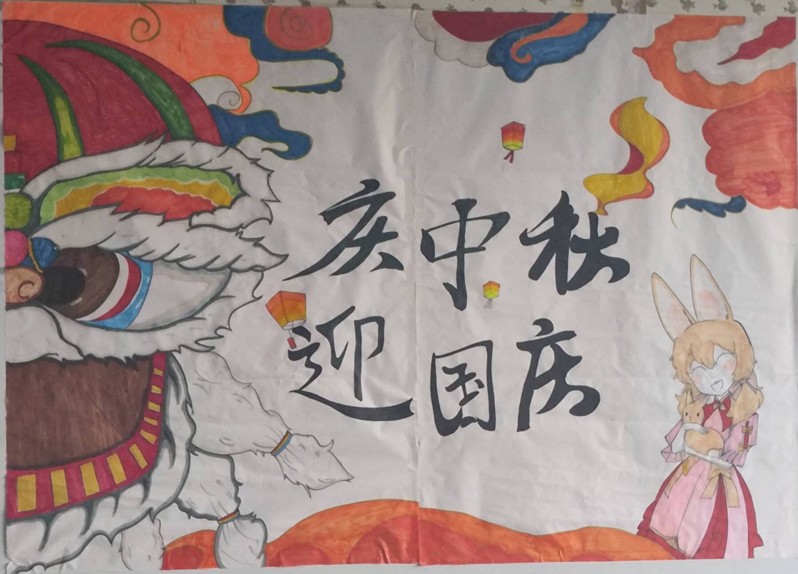 庆中秋
迎国庆